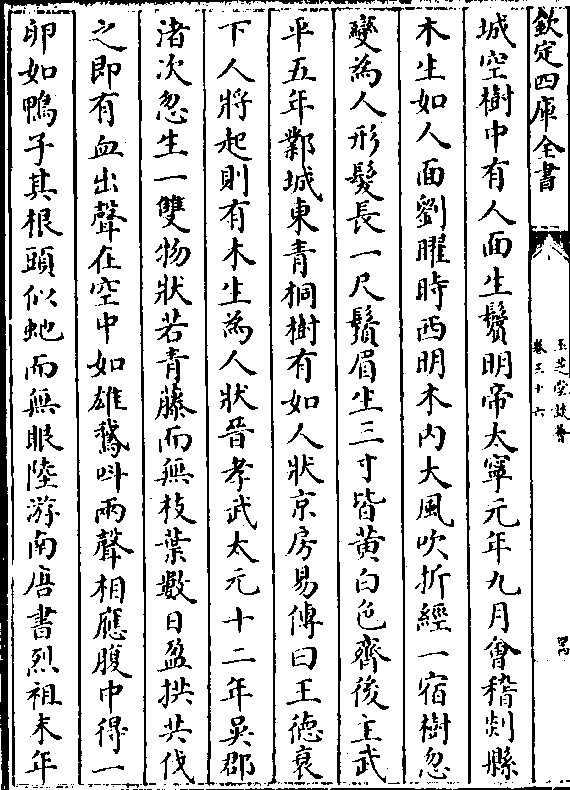 欽定四庫全書
玉芝堂談薈
卷三十六
城空樹中有人面生鬚明帝太寧元年九月會稽剡縣
木生如人面劉曜時西明木内大風吹折經一宿樹忽
變為人形髮長一尺鬚眉生三寸皆黄白色齊後主武
平五年鄴城東青桐樹有如人狀京房易傳曰王徳衰
下人將起則有木生為人狀晉孝武太元十二年吳郡
渚次忽生一雙物狀若青藤而無枝葉數日盈拱共伐
之即有血出聲在空中如雄鵞呌兩聲相應腹中得一
卵如鴨子其根頭似虵而無眼陸游南唐書烈祖末年